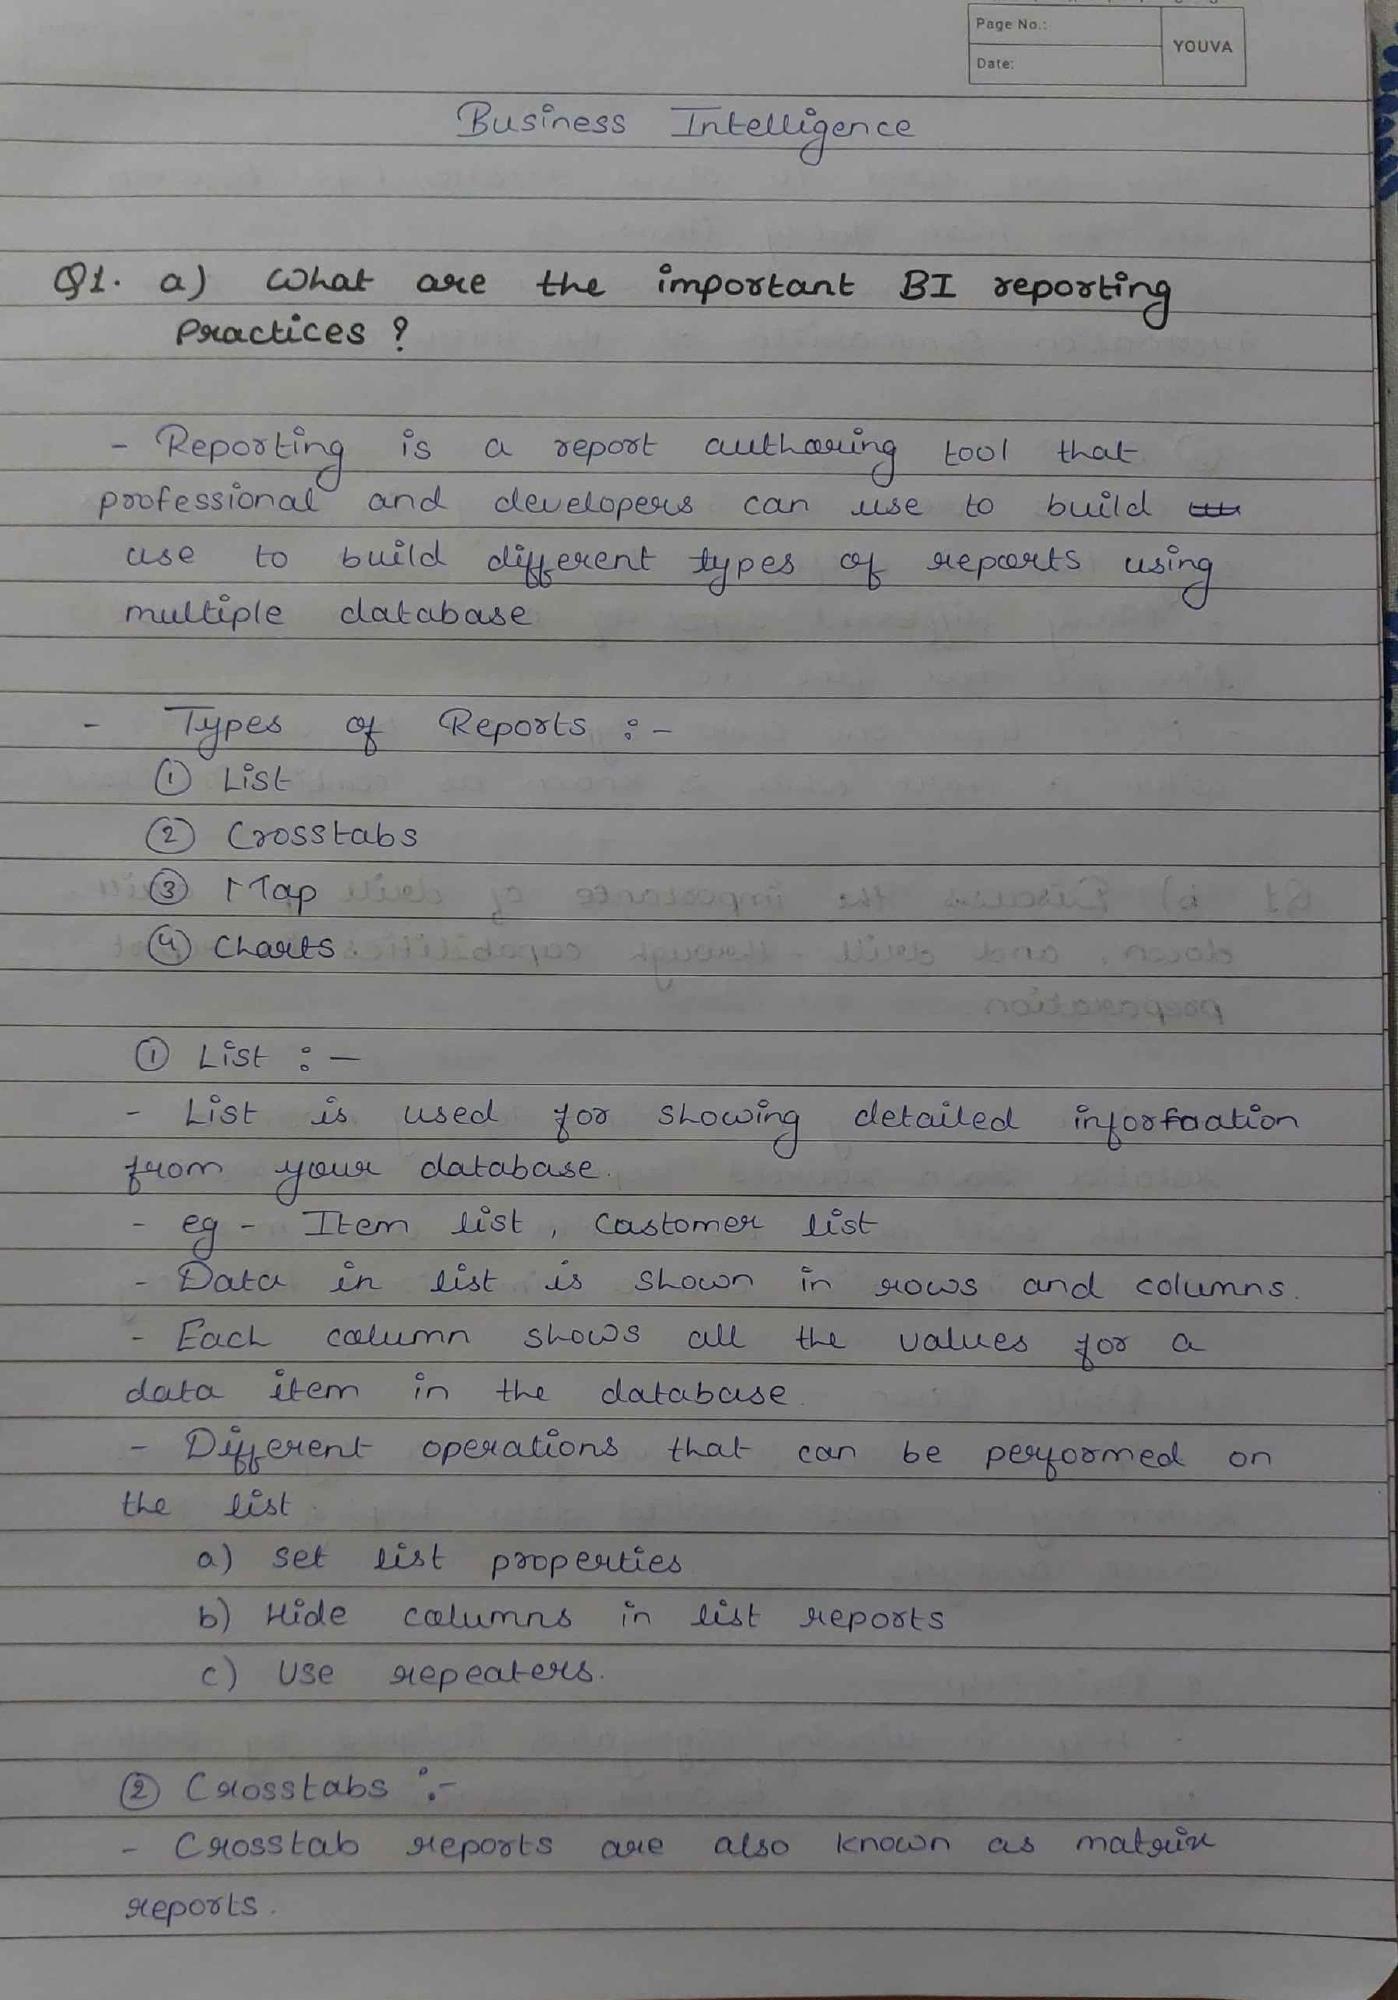 Page No.:
YOUVA
Date:
Business Intelligence
Q1. a) What are the important BI reporting
Practices ?
- Reporting is a report authoring tool that
professional and developers can use to build
use to build different types of reports using
multiple database
- Types of Reports :-
① List
② Crosstabs
③ Map
④ Charts.
① List :-
- List is used for showing detailed inforfaation
from your database.
- eg - Item list, Castomer list
- Data in list is shown in rows and columns.
- Each column shows all the values for a
data item in the database.
- Different operations that can be performed on
the list.
a) Set list properties
b) Hide columns in list reports
c) Use repeaters.
② Crosstabs :-
- Crosstab reports are also known as matrix
reports.